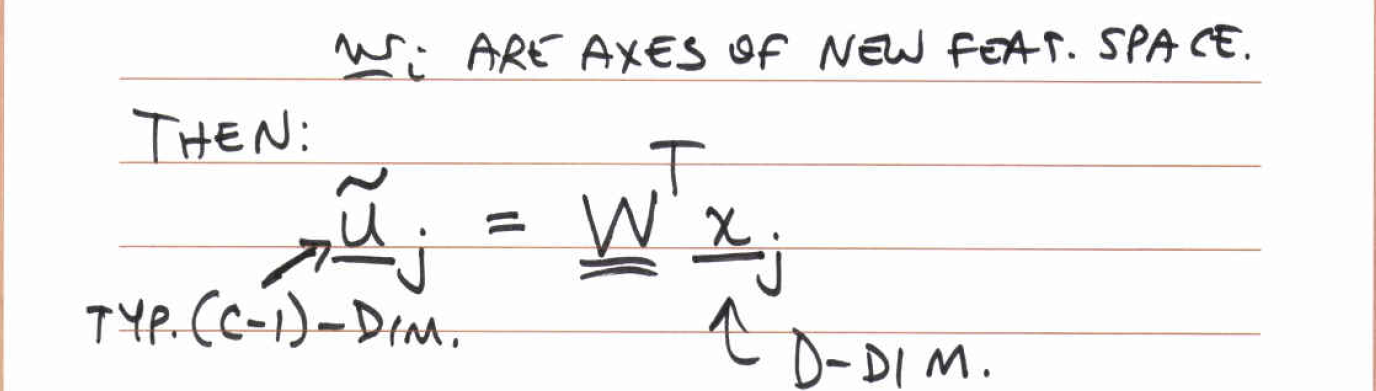 w̲ᵢ ARE AXES OF NEW FEAT. SPACE.
THEN:
ũ̲ⱼ = W̳ᵀ x̲ⱼ
TYP. (C-1)-DIM.
D-DIM.